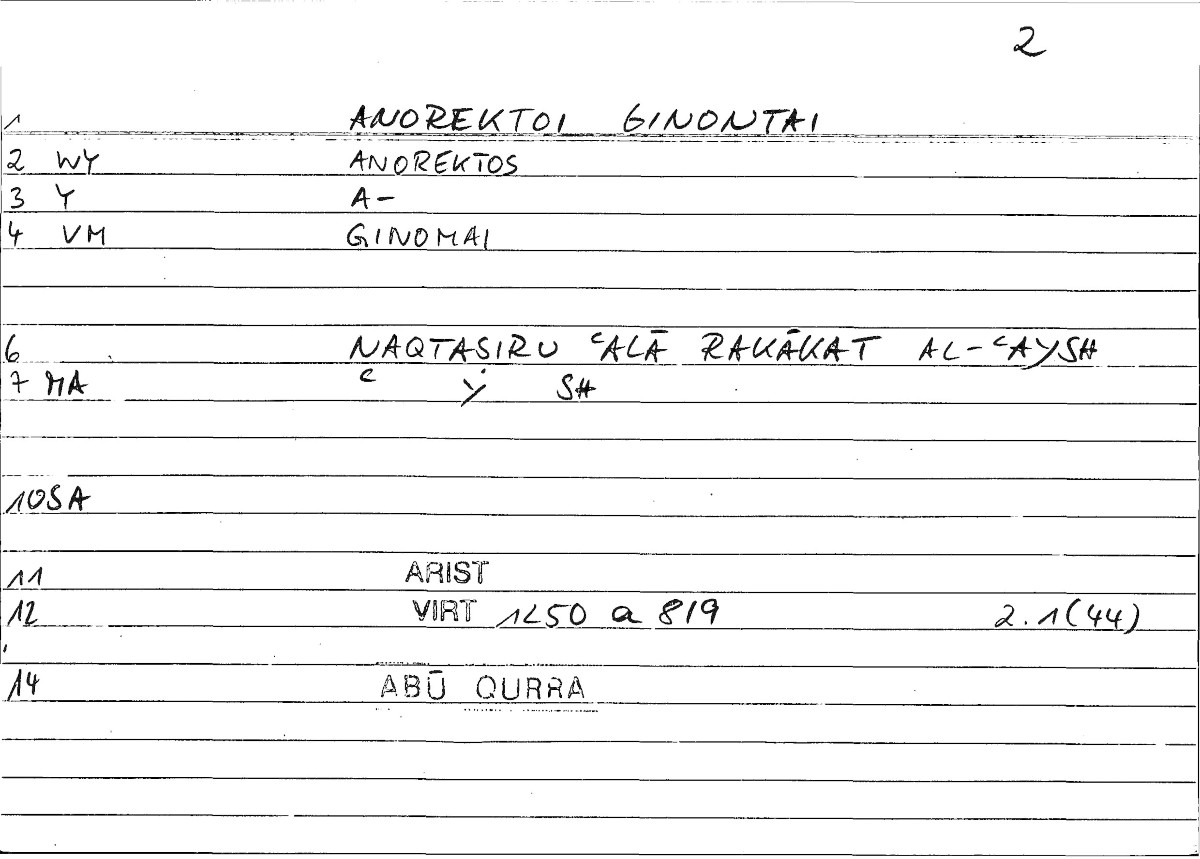 2
1 ANOREKTOI GINONTAI
2 WY ANOREKTOS
3 Y A-
4 VM GINOMAI
6 NAQTASIRU ʿALĀ RAKĀKAT AL-ʿAYSH
7 MA ʿ Y SH
10 SA
11 ARIST
12 VIRT 1250 a 8/9 2.1(44)
14 ABŪ QURRA